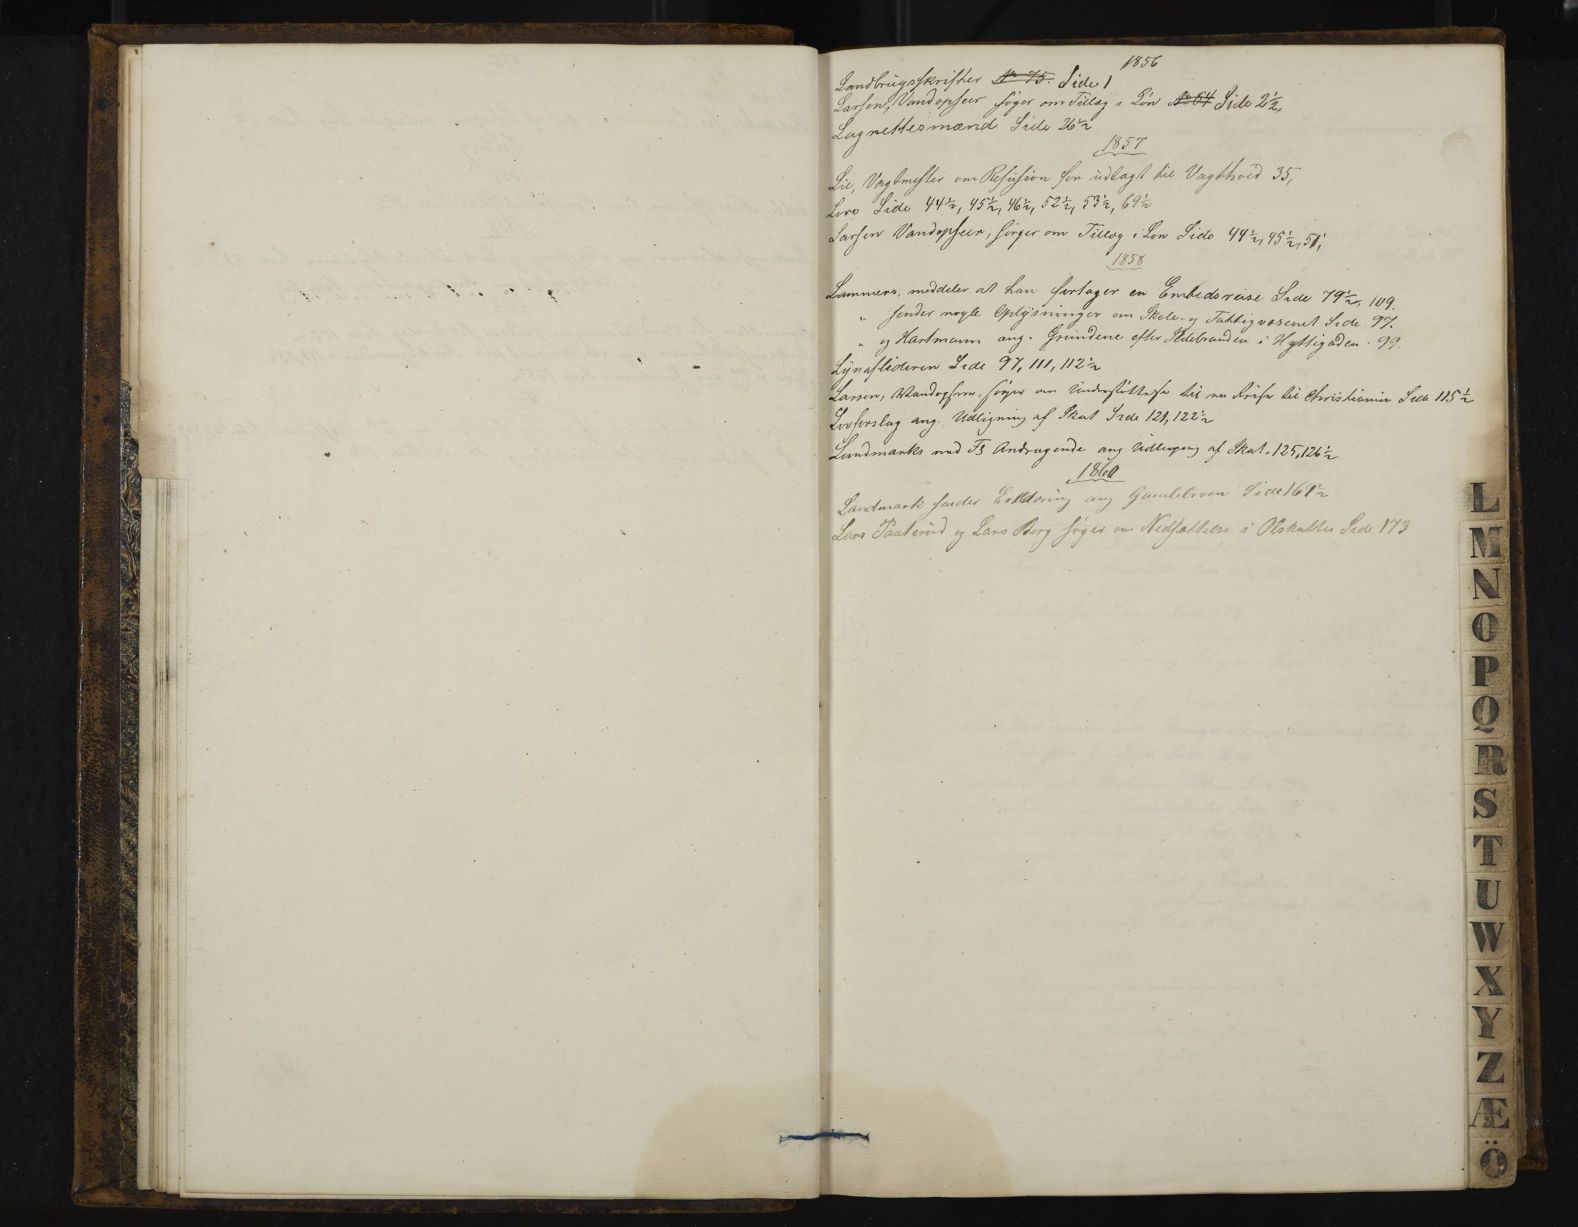 1856
Landbrugsskrifter No 75. Side 1
Larsen, Vandopseer søger om Tillæg i Løn No 64 Side 2½,
Lagrettesmænd Side 26½
1857
Lie, Vagtmester om Refusion for udlagt til Vagthold 35,
Love Side 44½, 45½, 46½, 52½, 53½, 69½
Larsen Vandopseer, søger om Tillæg i Løn Side 44½, 45½, 51,
1858
Lammers, meddeler at han foretager en Embedsreise Side 79½, 109.
„ sender nogle Oplysninger om Skole- og Fattigvæsenet Side 97.
„ og Hartmann ang. Grundene efter Ildebranden i Hyttegaden - 99.
Lynaflederen Side 97, 111, 112½
Larsen, Vandopseer, søger om Understøttelse til en Reise til Christiania Side 115½
Lovforslag ang. Udligning af Skat Side 121, 122½
Landmarks med Fl Andragende ang Udligning af Skat. 125, 126½
1860
Landmark sender Erklæring ang Gamlebroen Side 169½
Lars Paaterud og Lars Berg søger om Nedsættelse i Ølskatten Side 173
L
M
N
O
P
Q
R
S
T
U
W
X
Y
Z
Æ
Ö